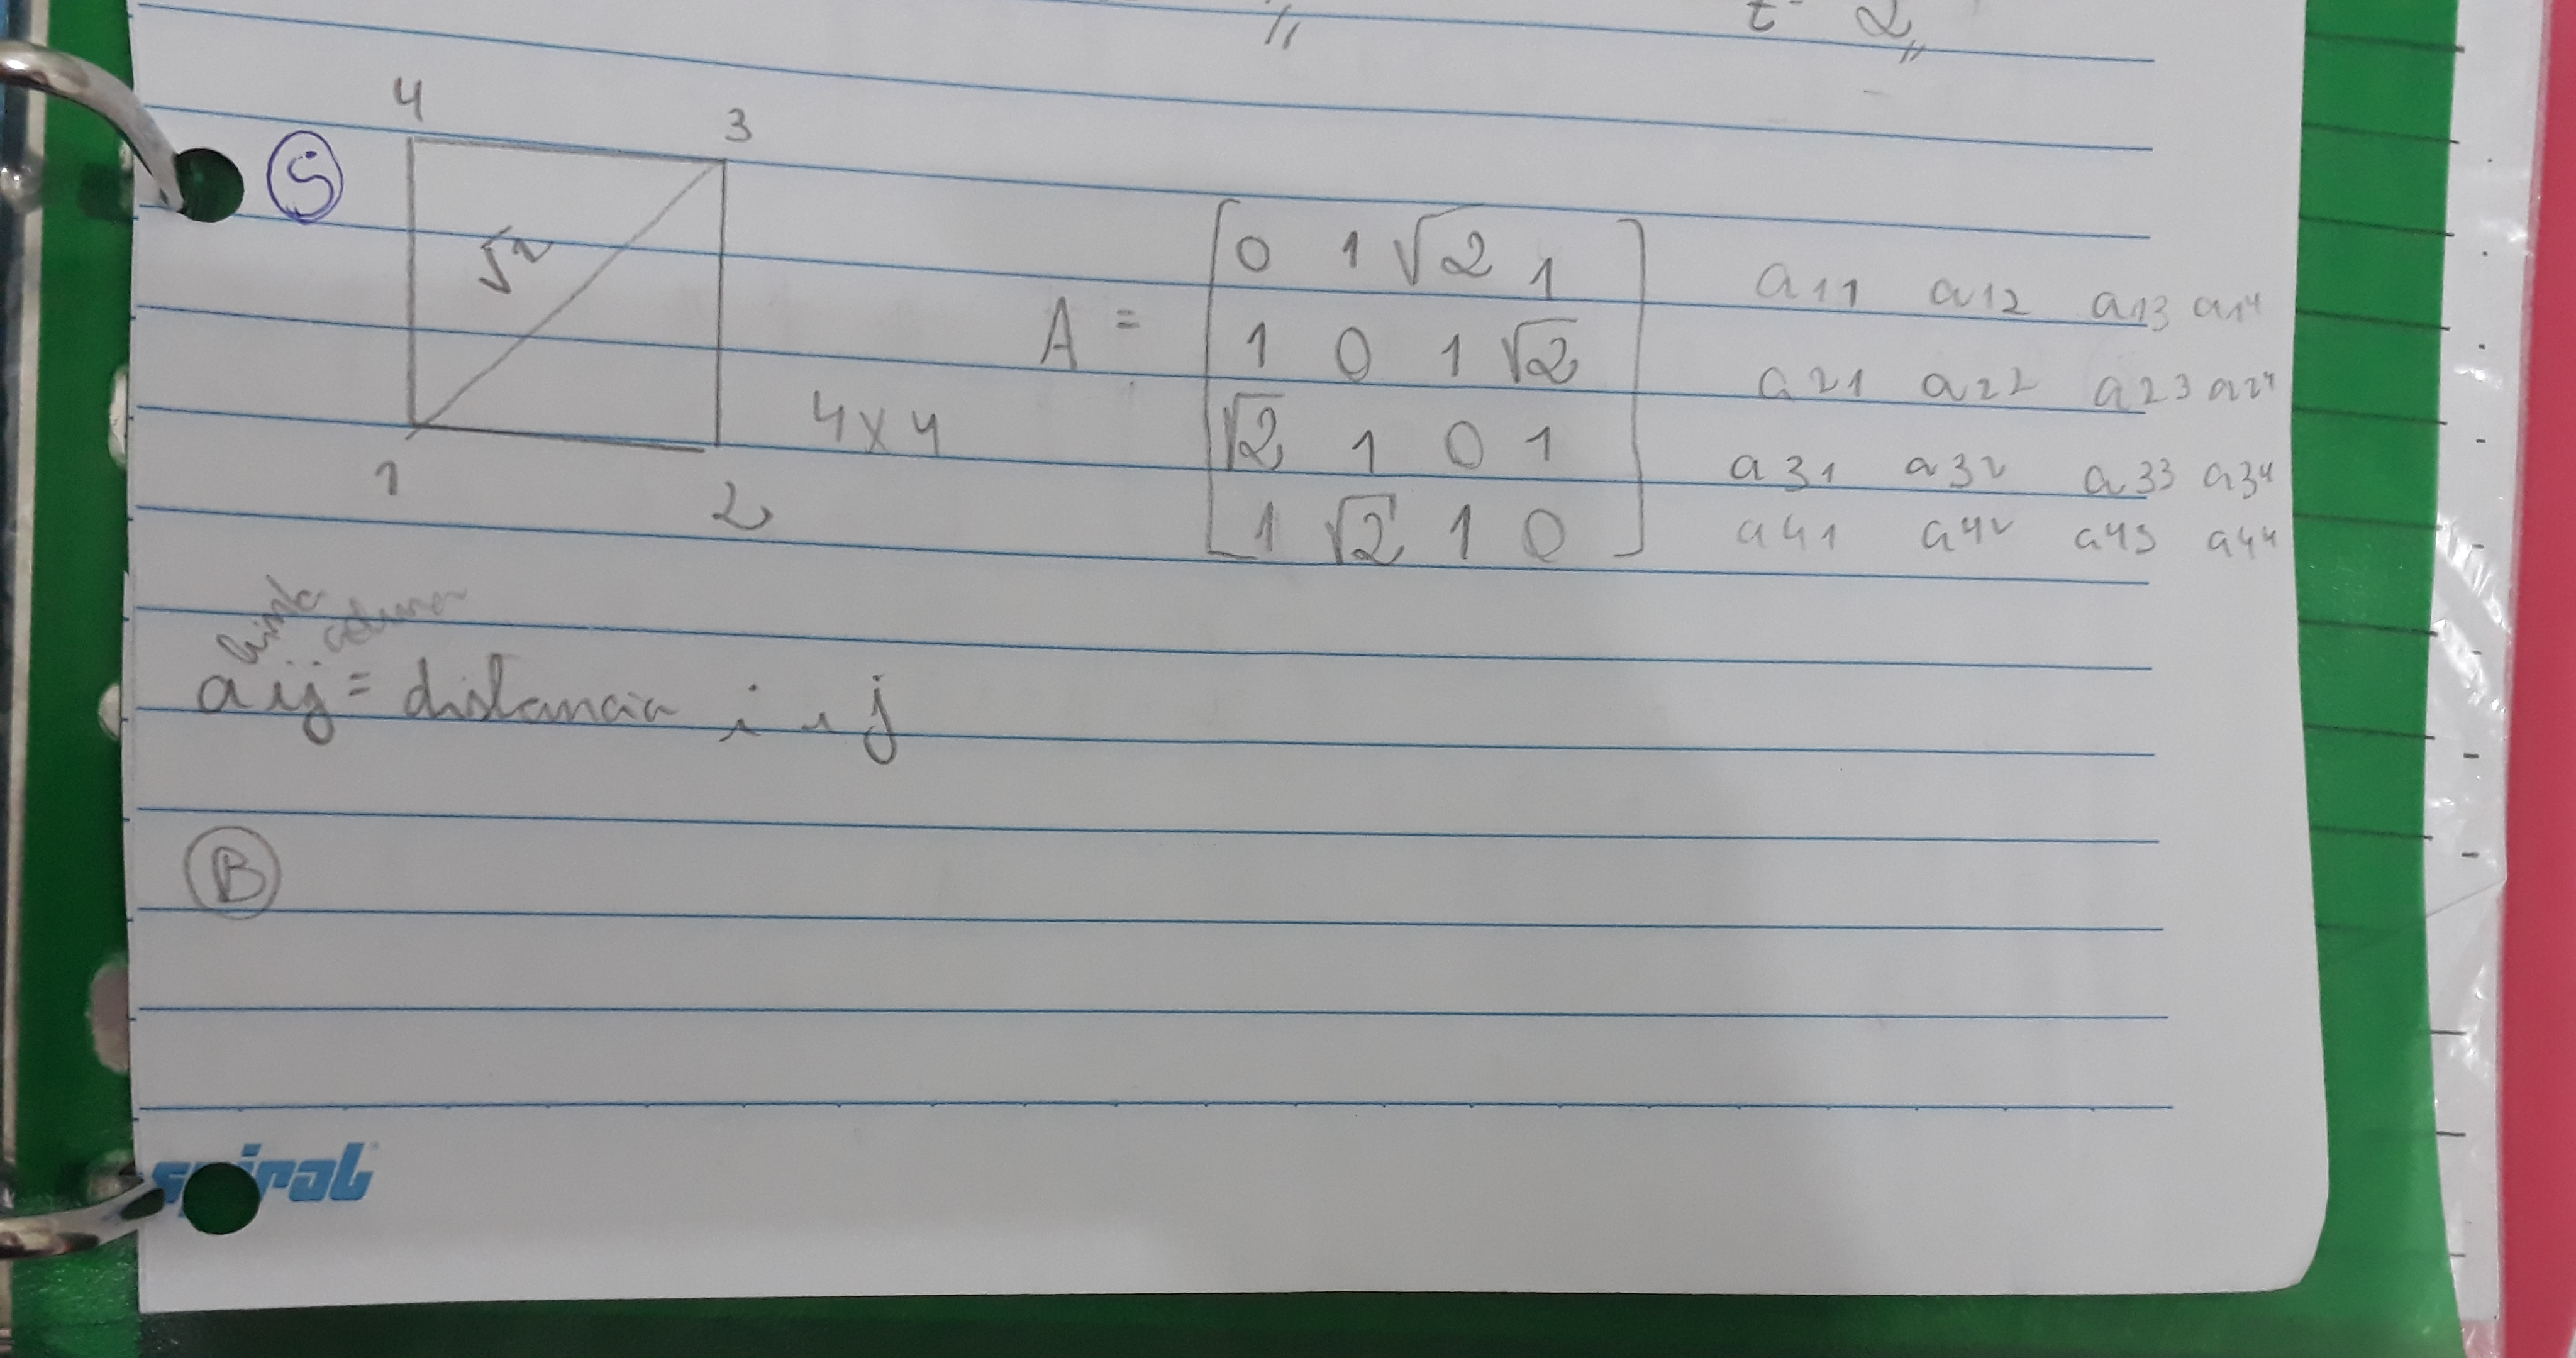 t- 2
4 3
5
√2
1 2
4x4
A = [0 1 √2 1
1 0 1 √2
√2 1 0 1
1 √2 1 0]
a11 a12 a13 a14
a21 a22 a23 a24
a31 a32 a33 a34
a41 a42 a43 a44
linha coluna
aij = distancia i e j
B
spiral